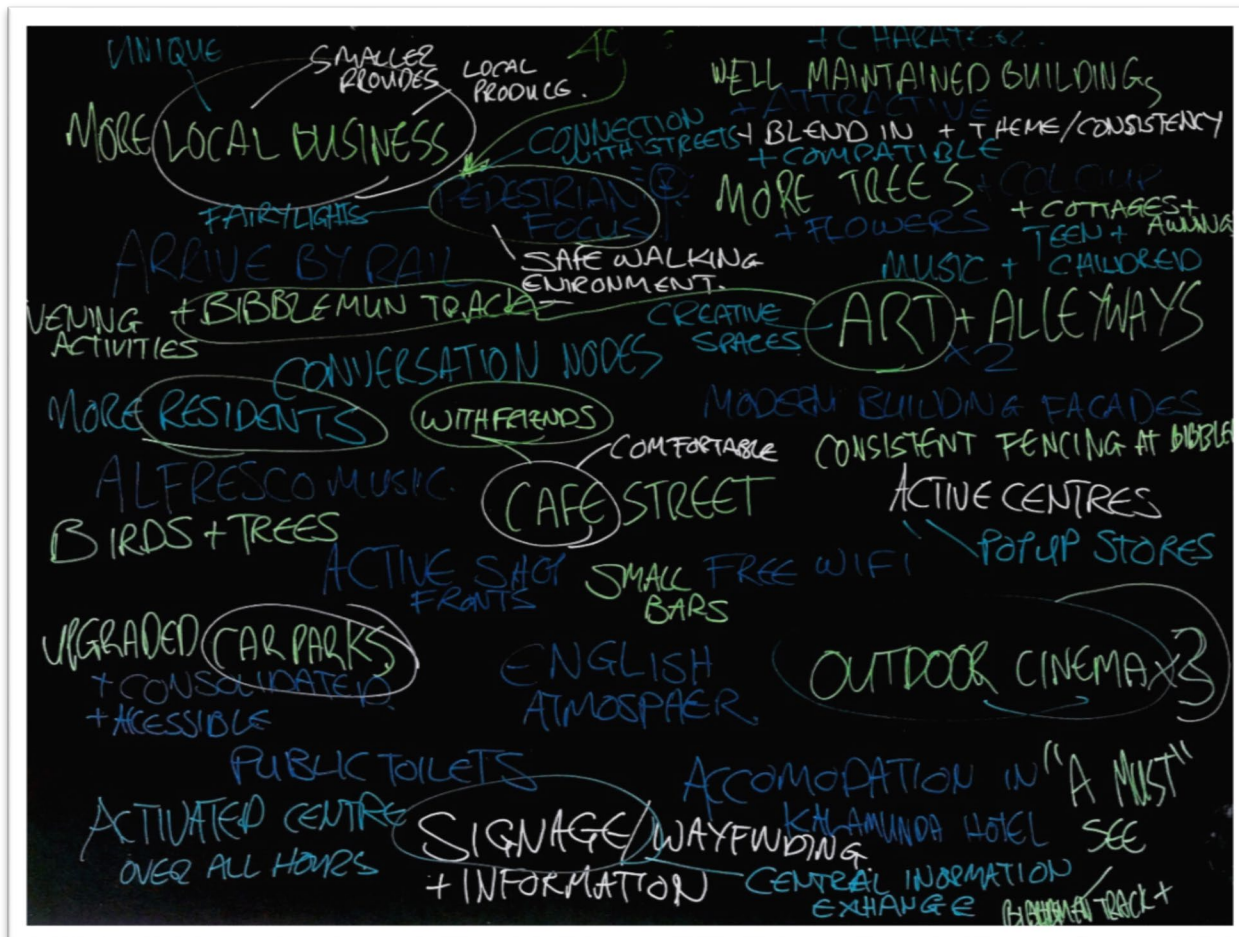 UNIQUE
SMALLER
PROVIDES
LOCAL
PRODUCE.
MORE LOCAL BUSINESS
+ CHARATER
WELL MAINTAINED BUILDINGS
+ ATTRACTIVE
+ BLEND IN + THEME/CONSISTENCY
+ COMPATIBLE
CONNECTION
WITH STREETS
PEDESTRIAN
FOCUS
FAIRYLIGHTS
SAFE WALKING
ENIRONMENT.
MORE TREES + COLOUR
+ FLOWERS
+ COTTAGES +
AWNING
TEEN +
MUSIC + CHILDREN
ARRIVE BY RAIL
+ BIBBLEMUN TRACK
VENING
ACTIVITIES
CREATIVE
SPACES
ART + ALLEYWAYS
x2
CONVERSATION NODES
MORE RESIDENTS
WITH FRIENDS
MODERN BUILDING FACADES
COMFORTABLE
CONSISTENT FENCING AT BIBBLE
ALFRESCO MUSIC.
CAFE STREET
ACTIVE CENTRES
BIRDS + TREES
POPUP STORES
ACTIVE SHOP
FRONTS
SMALL
BARS
FREE WIFI
UPGRADED CAR PARKS
+ CONSOLIDATED
+ ACESSIBLE
ENGLISH
ATMOSPAER.
OUTDOOR CINEMA x3
PUBLIC TOILETS
ACCOMODATION IN
KALAMUNDA HOTEL
"A MUST"
SEE
ACTIVATED CENTRE
OVER ALL HOURS
SIGNAGE/WAYFINDING
+ INFORMATION
CENTRAL INORMATION
EXHANGE
TRACK +